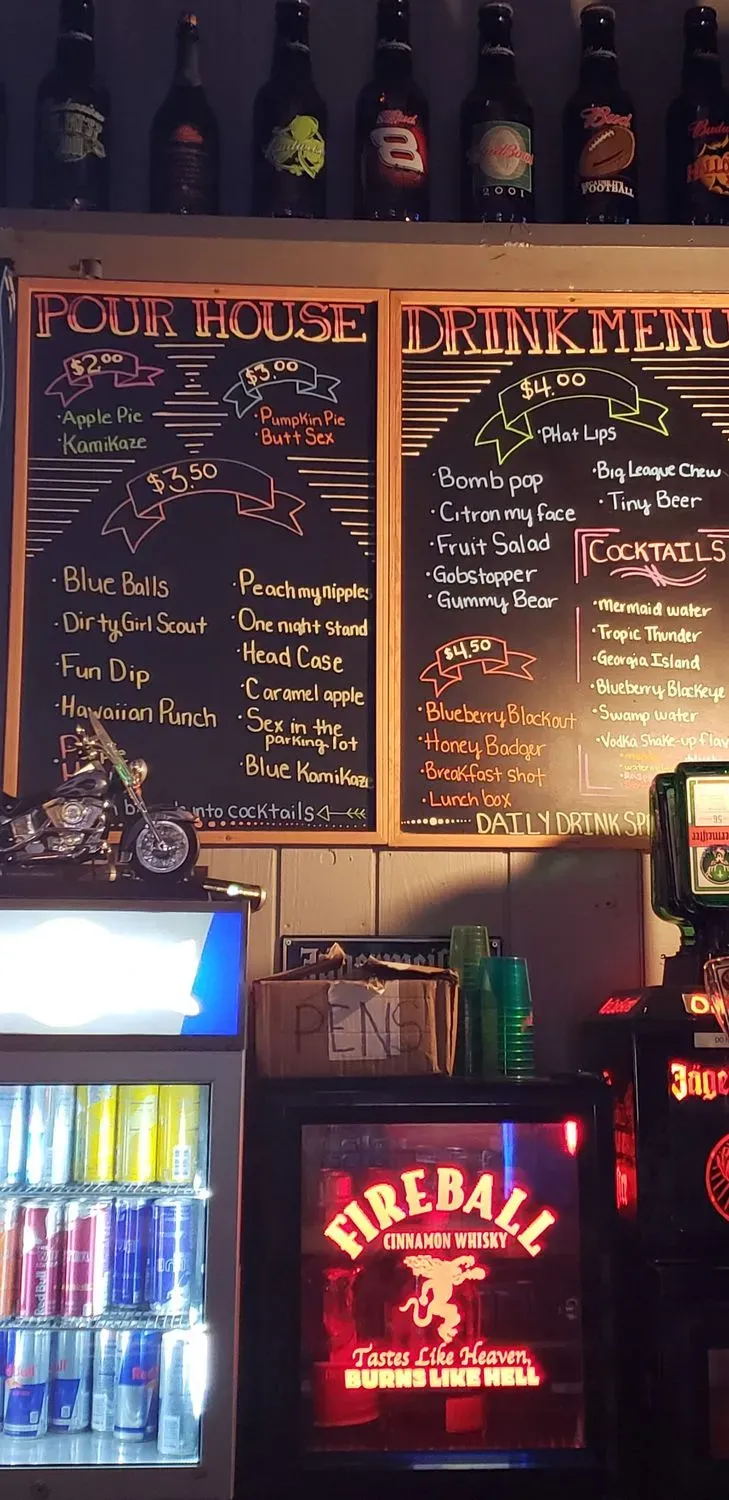 Bud
8
2001
Bud
FOOTBALL
POUR HOUSE
$2.00
· Apple Pie
· Kamikaze
$3.00
· Pumpkin Pie
· Butt Sex
$3.50
· Blue Balls
· Dirty Girl Scout
· Fun Dip
· Hawaiian Punch
· Peach my nipples
· One night stand
· Head Case
· Caramel apple
· Sex in the
parking lot
· Blue Kamikaze
into cocktails
DRINK MENU
$4.00
· PHat Lips
· Bomb pop
· Citron my face
· Fruit Salad
· Gobstopper
· Gummy Bear
· Big League Chew
· Tiny Beer
$4.50
· Blueberry Blackout
· Honey Badger
· Breakfast shot
· Lunch box
COCKTAILS
· Mermaid water
· Tropic Thunder
· Georgia Island
· Blueberry Blackeye
· Swamp water
· Vodka Shake-up flav
DAILY DRINK SP
PENS
Jäge
Red Bull
Red
FIREBALL
CINNAMON WHISKY
Tastes Like Heaven,
BURNS LIKE HELL